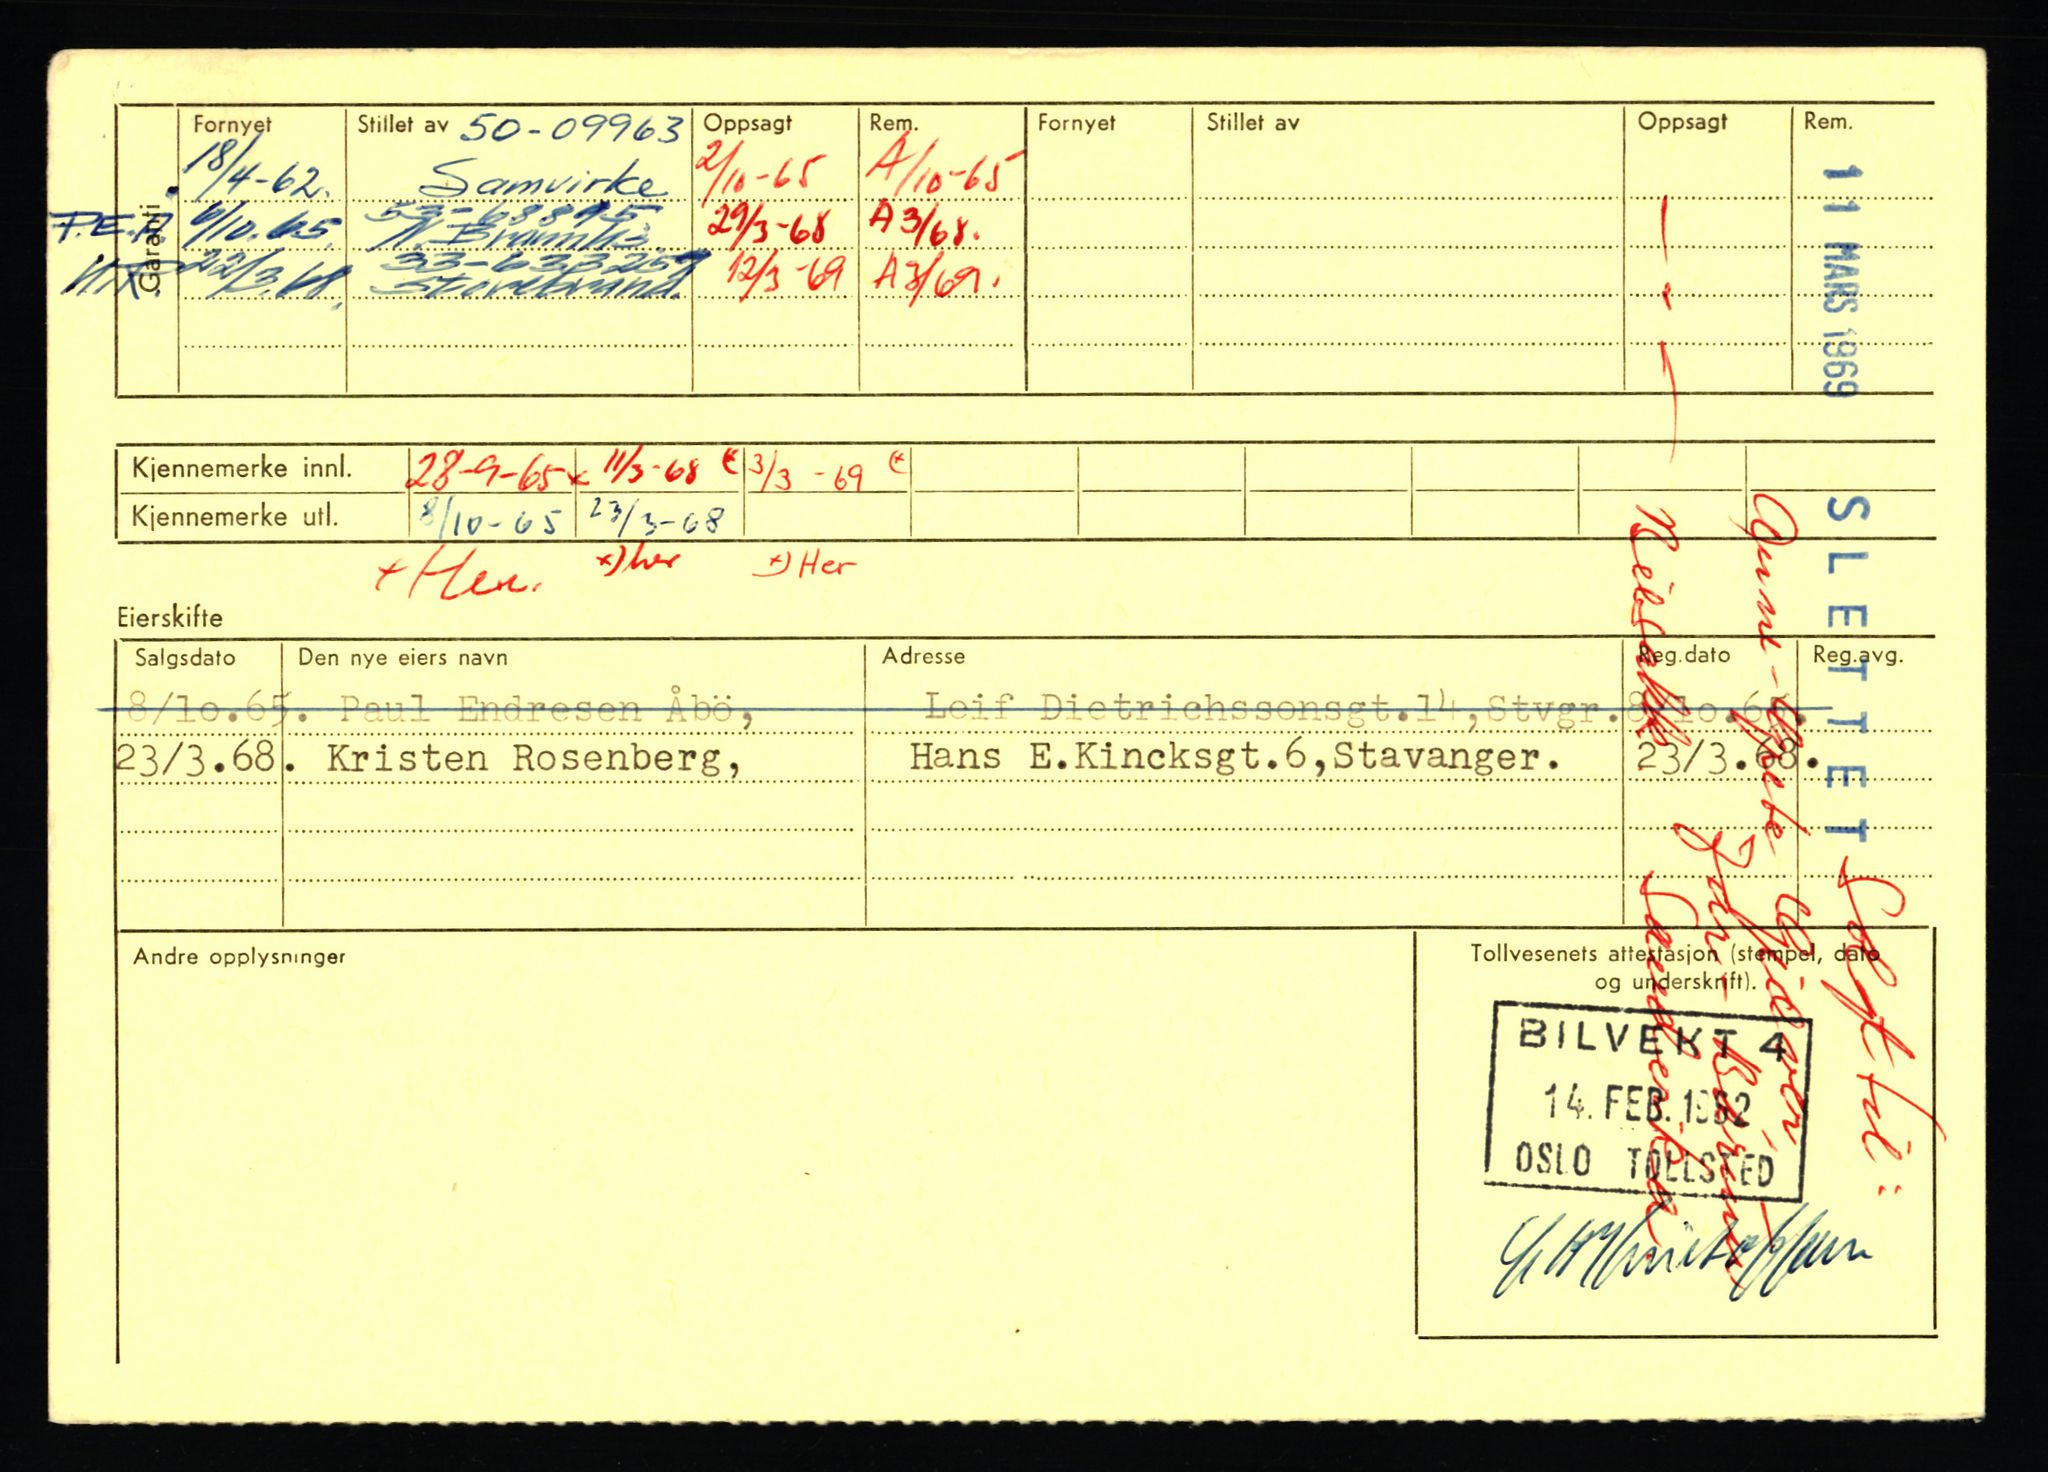 Garanti
Fornyet Stillet av 50-09963 Oppsagt Rem. Fornyet Stillet av Oppsagt Rem.
18/4-62. Samvirke 2/10-65 A/10-65
6/10.65. 53-68895 29/3-68 A 3/68.
22/3.68. Storebrand. 12/3-69 A3/69.
11 MARS 1969
Kjennemerke innl. 28-9-65 x 11/3-68 3/3-69
Kjennemerke utl. 8/10-65 23/3-68
+ Her. x) her x) Her
SLETTET
Solgt til:
Eierskifte
Salgsdato Den nye eiers navn Adresse Reg.dato Reg.avg.
8/10.65. Paul Endresen Åbö, Leif Dietrichssonsgt.14,Stvgr. 8/10.65.
23/3.68. Kristen Rosenberg, Hans E.Kincksgt.6,Stavanger. 23/3.68.
Andre opplysninger
Tollvesenets attestasjon (stempel, dato
og underskrift).
BILVEKT 4
14. FEB. 1962
OSLO TOLLSTED